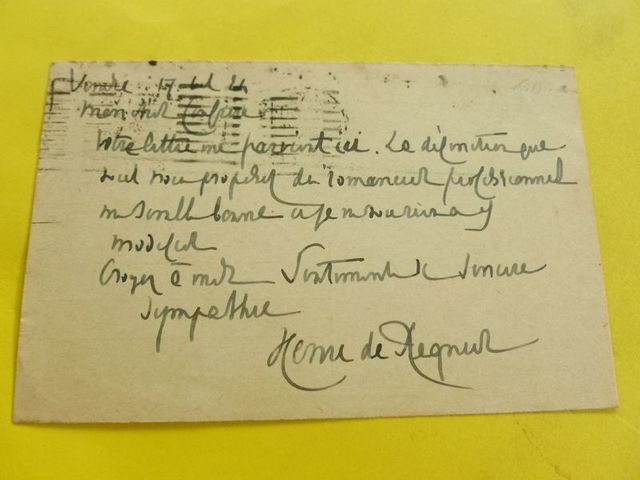 Mon cher Confrère
Votre lettre me parvient ici. La définition que
vous me proposez du romancier professionnel
me semble bonne et je ne vois rien à y
modifier
Croyez à mes sentiments de sincère
sympathie
Henri de Régnier